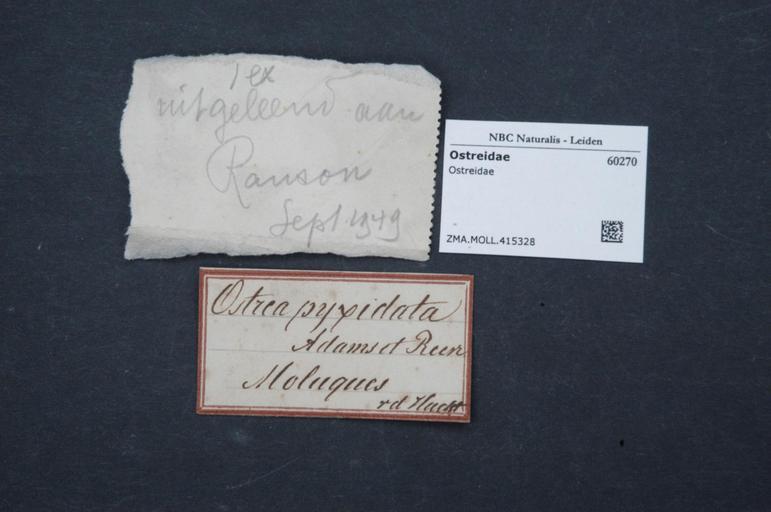 1 ex
uitgeleend aan
Ranson
Sept. 1949
NBC Naturalis - Leiden
Ostreidae 60270
Ostreidae
ZMA.MOLL.415328
Ostrea pyxidata
Adams et Reeve
Moluques